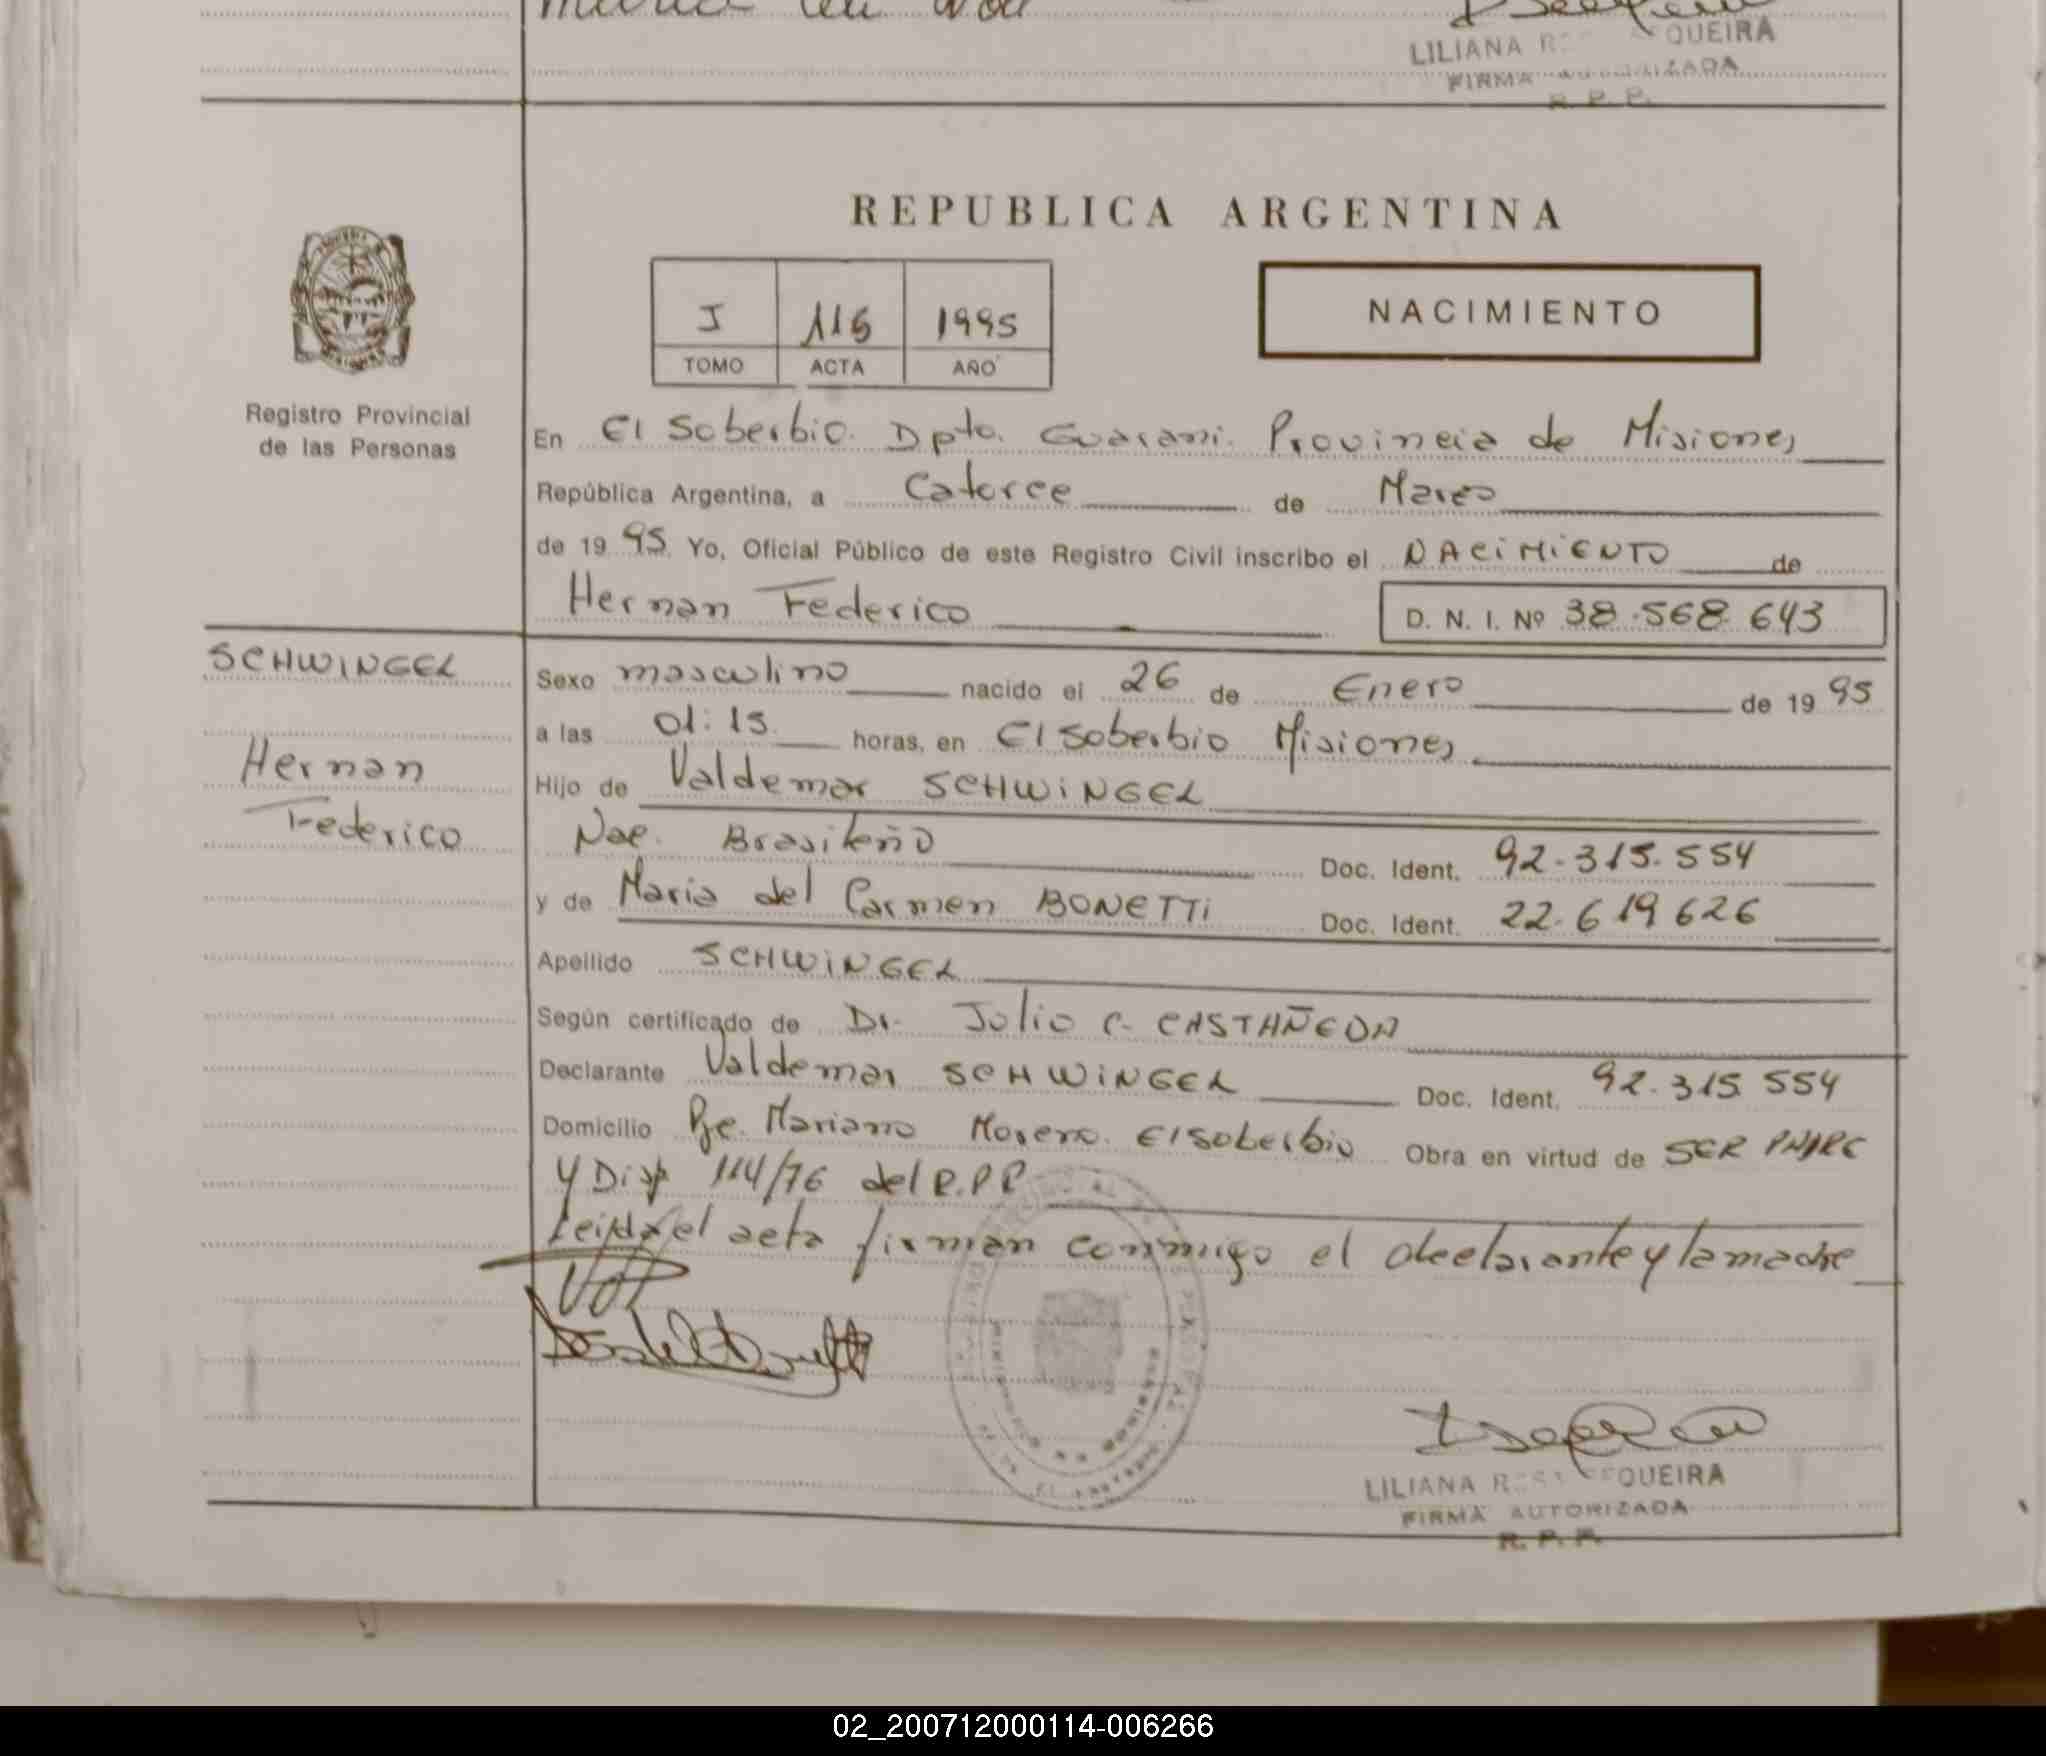 LILIANA QUEIRA
FIRMA AUTORIZADA
R. P. P.
REPUBLICA ARGENTINA
I 116 1995
TOMO ACTA AÑO
NACIMIENTO
Registro Provincial
de las Personas
En El Soberbio. Dpto. Guarani. Provincia de Misiones
República Argentina, a Catorce de Marzo
de 1995 Yo, Oficial Público de este Registro Civil inscribo el NACIMIENTO de
Hernan Federico D. N. I. Nº 38.568.643
SCHWINGEL
Hernan
Federico
Sexo masculino nacido el 26 de Enero de 1995
a las 01:15 horas, en El Soberbio Misiones
Hijo de Valdemar SCHWINGEL
Nac. Brasileño Doc. Ident. 92.315.554
y de Maria del Carmen BONETTI Doc. Ident. 22.619626
Apellido SCHWINGEL
Según certificado de Dr. Julio C. CASTAÑEDA
Declarante Valdemar SCHWINGEL Doc. Ident. 92.315.554
Domicilio Pje. Mariano Moreno. El Soberbio Obra en virtud de SER PADRE
Y Disp 114/76 del R.P.P
Leida el acta firman conmigo el declarante y la madre
LILIANA QUEIRA
FIRMA AUTORIZADA
R. P. P.
02_200712000114-006266